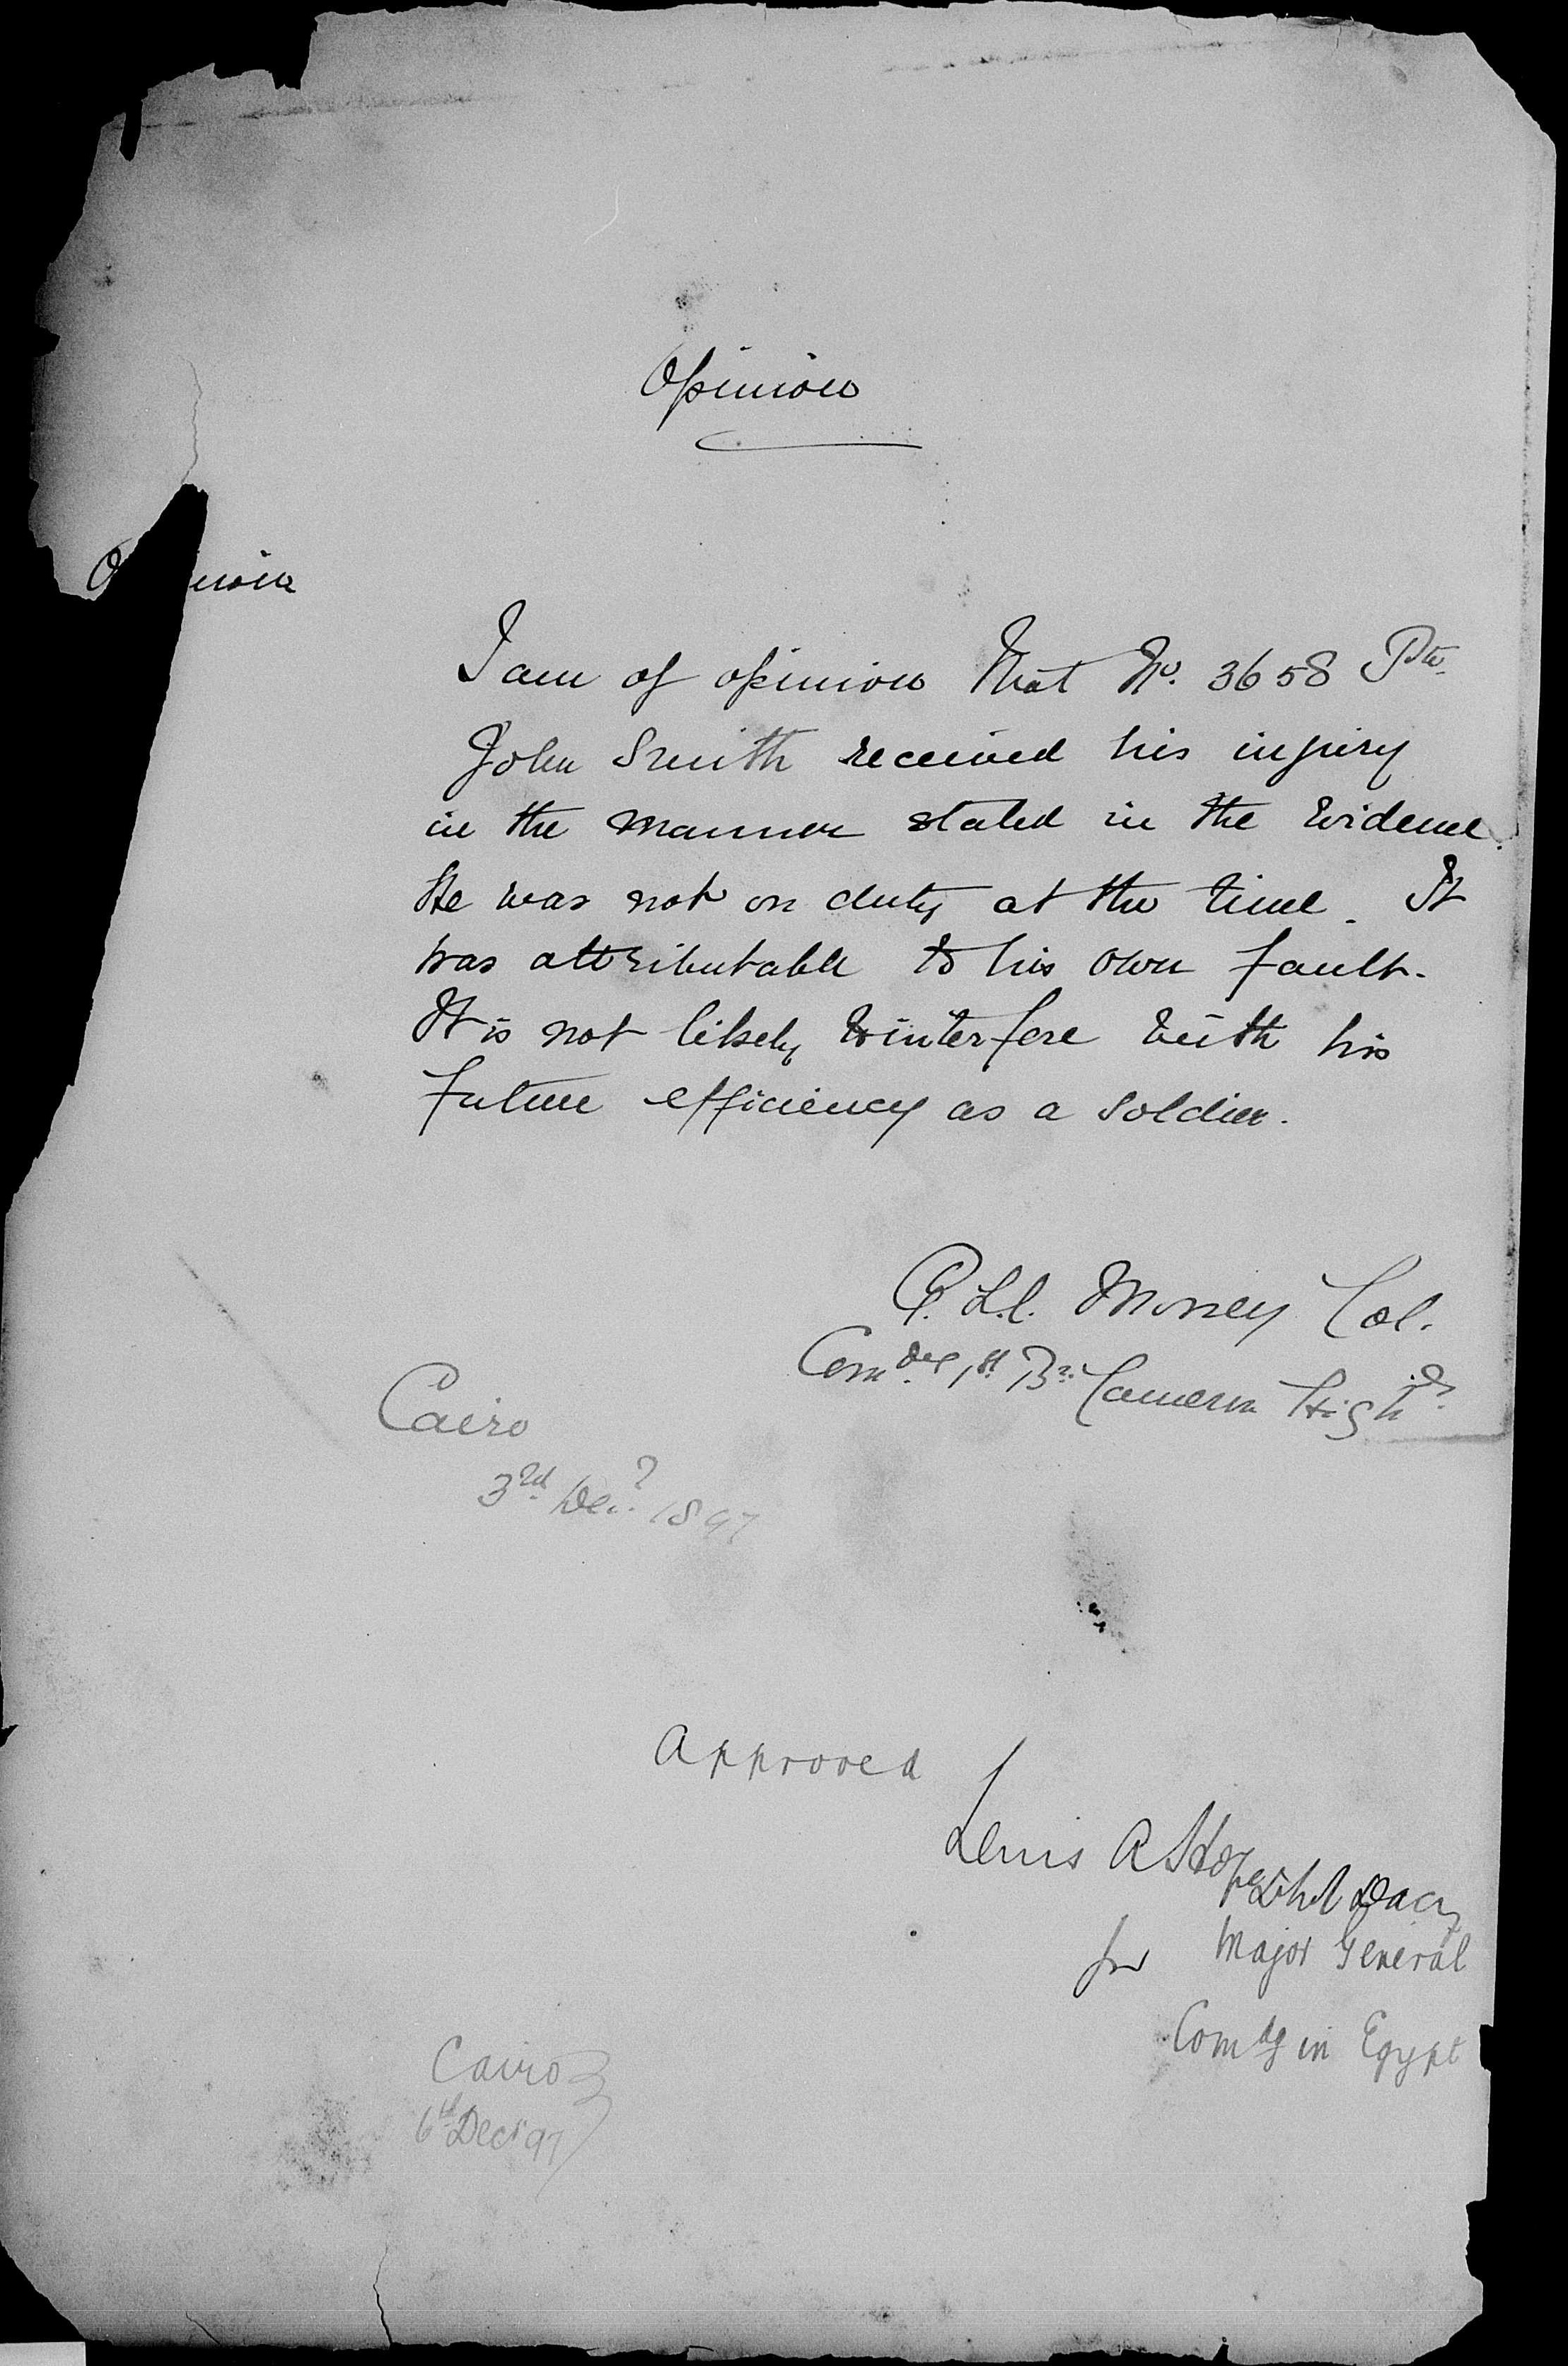 Opinion
O nion
I am of opinion that No. 3658 Pte.
John Smith received his injury
in the manner stated in the Evidence.
He was not on duty at the time. It
was attributable to his own fault.
It is not likely to interfere with his
future efficiency as a soldier.
G. L. C. Money Col.
Comdg. 1st Bn. Cameron Highds.
Cairo
3rd Decr. 1897
Approved
Lewis A Hope
for Major General
Comdg in Egypt
Cairo
6th Decr 97